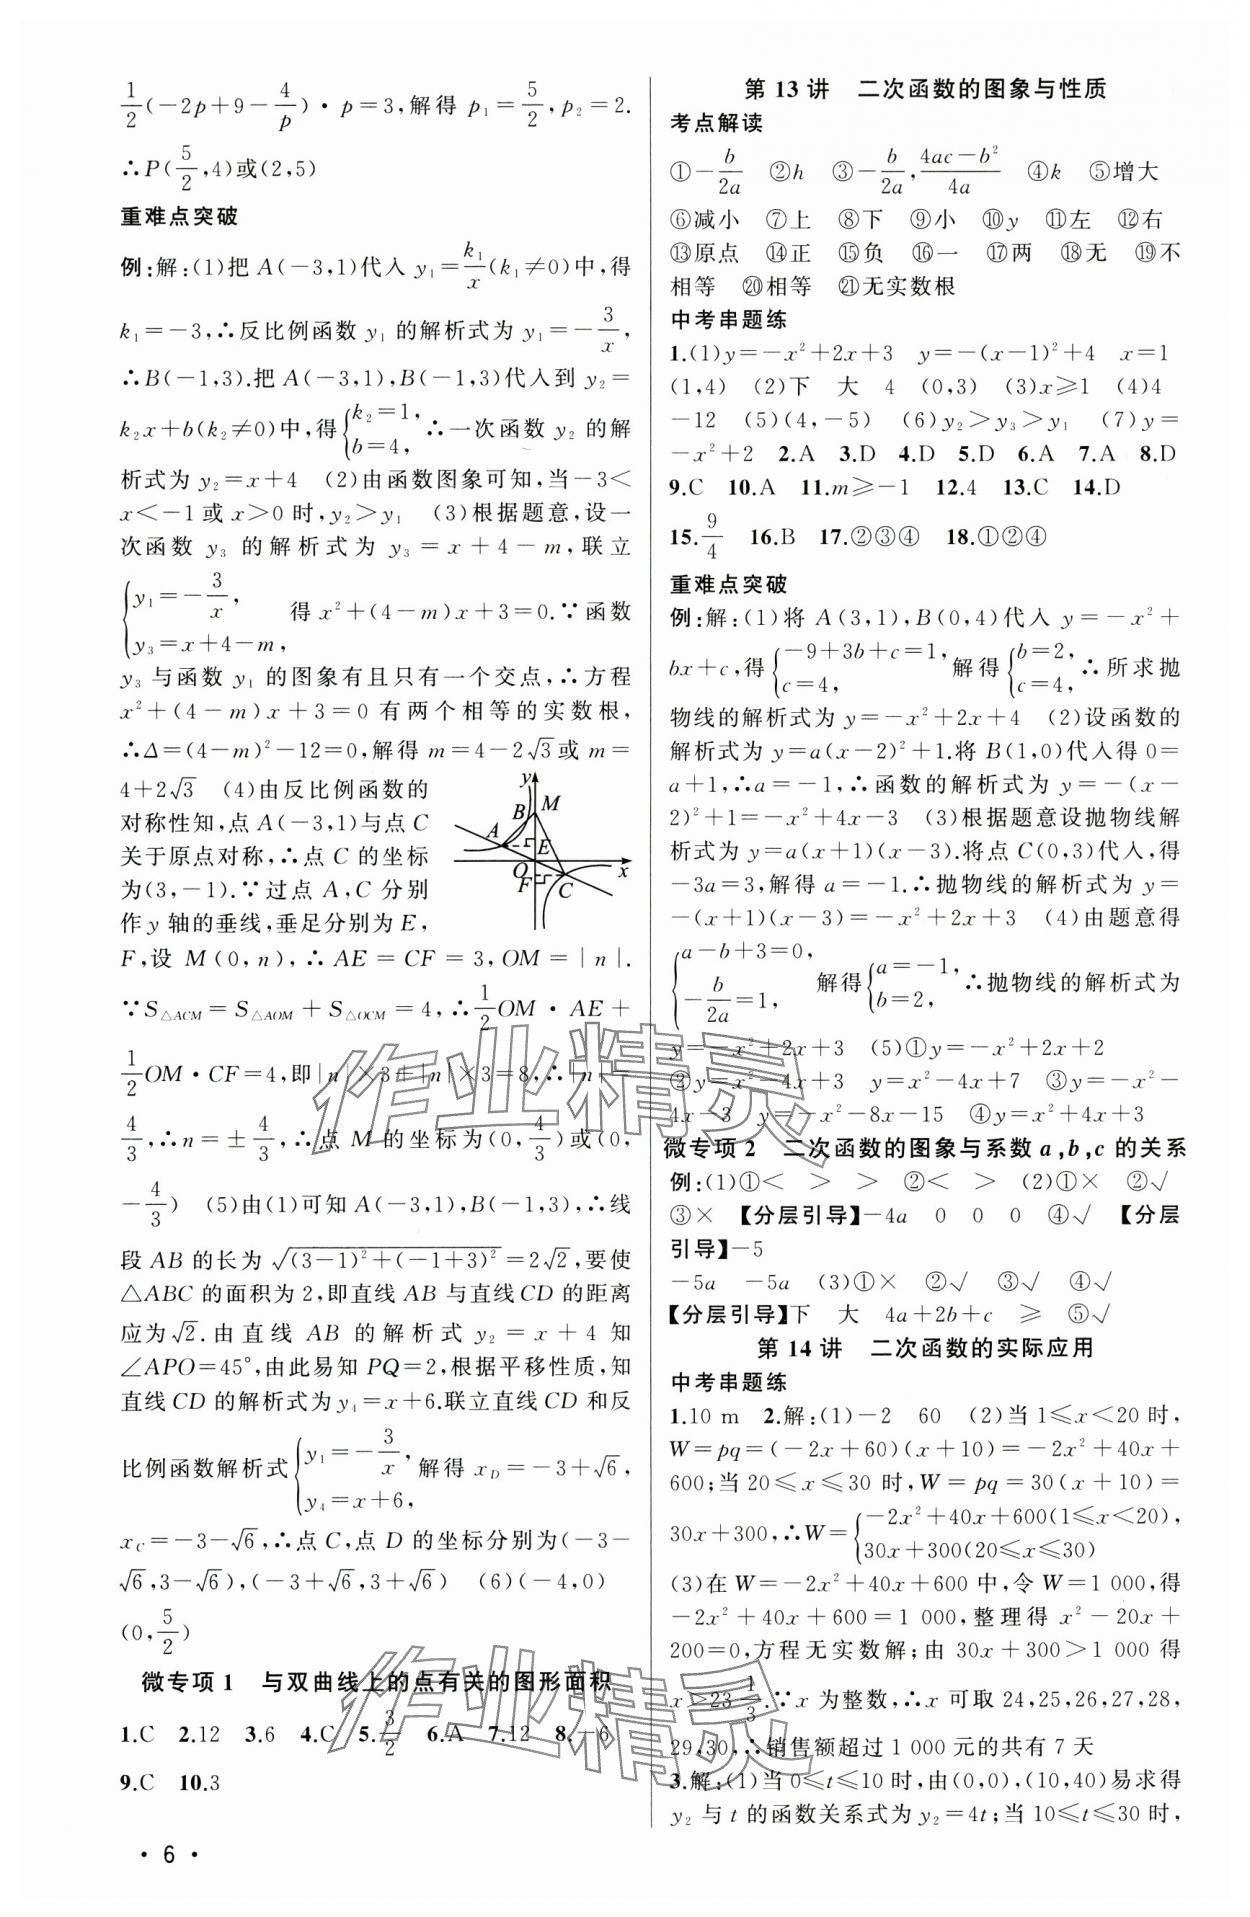 1/2(−2p+9−4/p)·p=3,解得 p₁=5/2,p₂=2.
∴P(5/2,4)或(2,5)
重难点突破
例:解:(1)把 A(−3,1)代入 y₁=k₁/x(k₁≠0)中,得
k₁=−3,∴反比例函数 y₁ 的解析式为 y₁=−3/x,
∴B(−1,3).把 A(−3,1),B(−1,3)代入到 y₂=
k₂x+b(k₂≠0)中,得{k₂=1, b=4, ∴一次函数 y₂ 的解
析式为 y₂=x+4 (2)由函数图象可知,当−3<
x<−1 或 x>0 时,y₂>y₁ (3)根据题意,设一
次函数 y₃ 的解析式为 y₃=x+4−m,联立
{y₁=−3/x, y₃=x+4−m, 得 x²+(4−m)x+3=0.∵函数
y₃ 与函数 y₁ 的图象有且只有一个交点,∴方程
x²+(4−m)x+3=0 有两个相等的实数根,
∴Δ=(4−m)²−12=0,解得 m=4−2√3或 m=
4+2√3 (4)由反比例函数的
对称性知,点 A(−3,1)与点 C
关于原点对称,∴点 C 的坐标
为(3,−1).∵过点 A,C 分别
作 y 轴的垂线,垂足分别为 E,
y
B M
A
E
O x
F C
F,设 M(0,n),∴AE=CF=3,OM=|n|.
∵S△ACM=S△AOM+S△OCM=4,∴1/2OM·AE+
1/2OM·CF=4,即|n|×3+|n|×3=8,∴|n|=
4/3,∴n=±4/3,∴点 M 的坐标为(0,4/3)或(0,
−4/3) (5)由(1)可知 A(−3,1),B(−1,3),∴线
段 AB 的长为√((3−1)²+(−1+3)²)=2√2,要使
△ABC 的面积为 2,即直线 AB 与直线 CD 的距离
应为√2.由直线 AB 的解析式 y₂=x+4 知
∠APO=45°,由此易知 PQ=2,根据平移性质,知
直线 CD 的解析式为 y₄=x+6.联立直线 CD 和反
比例函数解析式{y₁=−3/x, y₄=x+6, 解得 x_D=−3+√6,
x_C=−3−√6,∴点 C,点 D 的坐标分别为(−3−
√6,3−√6),(−3+√6,3+√6) (6)(−4,0)
(0,5/2)
微专项 1 与双曲线上的点有关的图形面积
1.C 2.12 3.6 4.C 5.3/2 6.A 7.12 8.−6
9.C 10.3
· 6 ·
第 13 讲 二次函数的图象与性质
考点解读
①−b/2a ②h ③−b/2a,(4ac−b²)/4a ④k ⑤增大
⑥减小 ⑦上 ⑧下 ⑨小 ⑩y ⑪左 ⑫右
⑬原点 ⑭正 ⑮负 ⑯一 ⑰两 ⑱无 ⑲不
相等 ⑳相等 ㉑无实数根
中考串题练
1.(1)y=−x²+2x+3 y=−(x−1)²+4 x=1
(1,4) (2)下 大 4 (0,3) (3)x≥1 (4)4
−12 (5)(4,−5) (6)y₂>y₃>y₁ (7)y=
−x²+2 2.A 3.D 4.D 5.D 6.A 7.A 8.D
9.C 10.A 11.m≥−1 12.4 13.C 14.D
15.9/4 16.B 17.②③④ 18.①②④
重难点突破
例:解:(1)将 A(3,1),B(0,4)代入 y=−x²+
bx+c,得{−9+3b+c=1, c=4, 解得{b=2, c=4, ∴所求抛
物线的解析式为 y=−x²+2x+4 (2)设函数的
解析式为 y=a(x−2)²+1.将 B(1,0)代入得 0=
a+1,∴a=−1,∴函数的解析式为 y=−(x−
2)²+1=−x²+4x−3 (3)根据题意设抛物线解
析式为 y=a(x+1)(x−3).将点 C(0,3)代入,得
−3a=3,解得 a=−1.∴抛物线的解析式为 y=
−(x+1)(x−3)=−x²+2x+3 (4)由题意得
{a−b+3=0, −b/2a=1, 解得{a=−1, b=2, ∴抛物线的解析式为
y=−x²+2x+3 (5)①y=−x²+2x+2
②y=x²−4x+3 y=x²−4x+7 ③y=−x²−
4x−3 y=−x²−8x−15 ④y=x²+4x+3
微专项 2 二次函数的图象与系数 a,b,c 的关系
例:(1)①< > > ②< > (2)①× ②√
③× 【分层引导】−4a 0 0 0 ④√ 【分层
引导】−5
−5a −5a (3)①× ②√ ③√ ④√
【分层引导】下 大 4a+2b+c ≥ ⑤√
第 14 讲 二次函数的实际应用
中考串题练
1.10 m 2.解:(1)−2 60 (2)当 1≤x<20 时,
W=pq=(−2x+60)(x+10)=−2x²+40x+
600;当 20≤x≤30 时,W=pq=30(x+10)=
30x+300,∴W={−2x²+40x+600(1≤x<20), 30x+300(20≤x≤30)
(3)在 W=−2x²+40x+600 中,令 W=1 000,得
−2x²+40x+600=1 000,整理得 x²−20x+
200=0,方程无实数解;由 30x+300>1 000 得
x>23 1/3.∵x 为整数,∴x 可取 24,25,26,27,28,
29,30,∴销售额超过 1 000 元的共有 7 天
3.解:(1)当 0≤t≤10 时,由(0,0),(10,40)易求得
y₂ 与 t 的函数关系式为 y₂=4t;当 10≤t≤30 时,
作业精灵
作业精灵